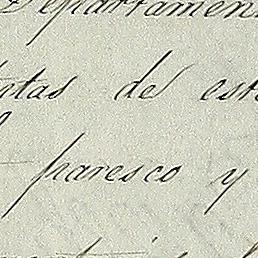 Departamen
tas de est
paresco y